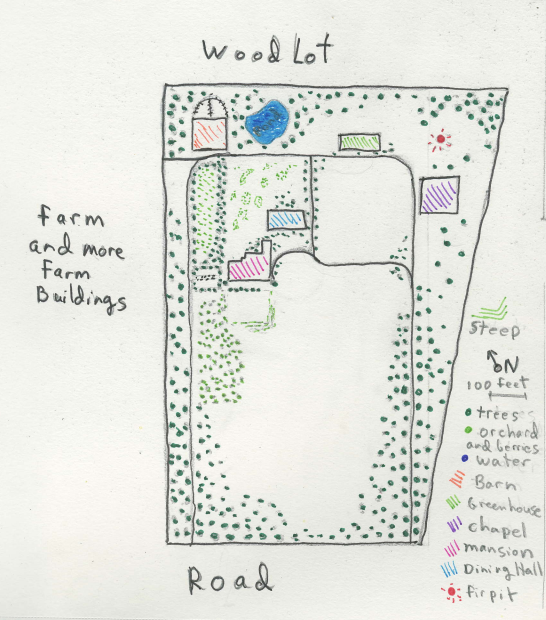 Wood Lot
Farm
and more
Farm
Buildings
Steep
N
100 feet
trees
orchard
and berries
water
Barn
Greenhouse
chapel
mansion
Dining Hall
firpit
Road